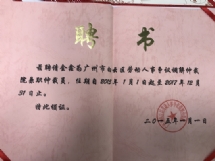 聘 书
兹聘请金鑫为广州市白云区劳动人事争议调解仲裁
院兼职仲裁员，任期自2015年1月1日起至2017年12月
31日止。
特此颁证。
二〇一五年一月一日